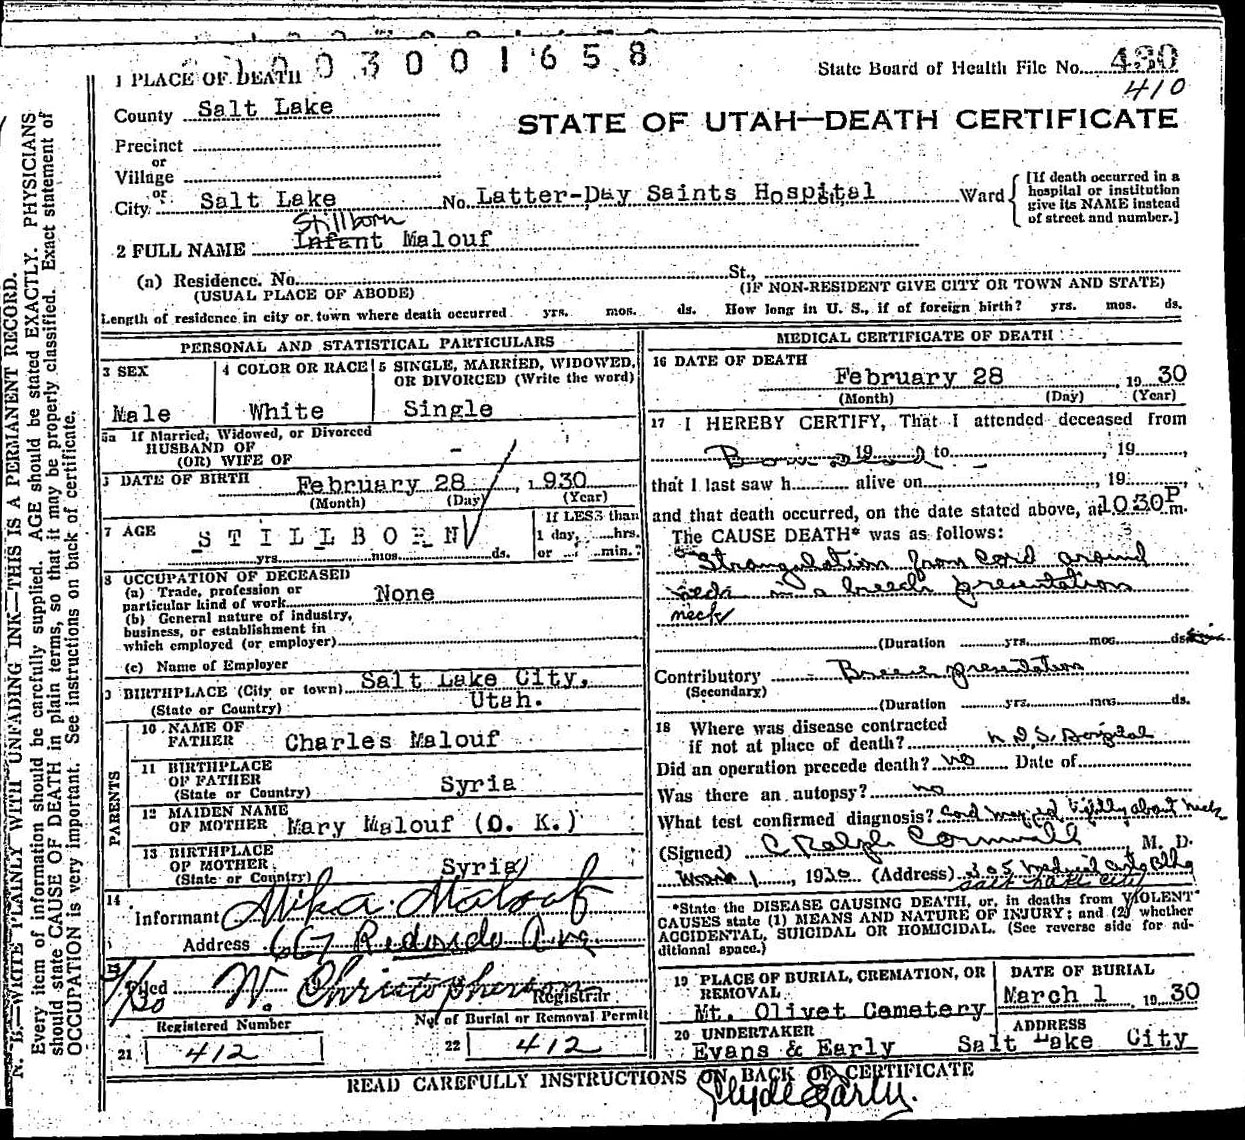 3001658
State Board of Health File No. 430
410
1 PLACE OF DEATH
County Salt Lake
STATE OF UTAH—DEATH CERTIFICATE
Precinct
or
Village
or
City Salt Lake No. Latter-Day Saints Hospital Ward
[If death occurred in a hospital or institution give its NAME instead of street and number.]
Stillborn
2 FULL NAME Infant Malouf
(a) Residence. No. St.,
(USUAL PLACE OF ABODE) (IF NON-RESIDENT GIVE CITY OR TOWN AND STATE)
Length of residence in city or town where death occurred yrs. mos. ds. How long in U. S., if of foreign birth? yrs. mos. ds.
PERSONAL AND STATISTICAL PARTICULARS
3 SEX
Male
4 COLOR OR RACE
White
5 SINGLE, MARRIED, WIDOWED, OR DIVORCED (Write the word)
Single
5a If Married, Widowed, or Divorced
HUSBAND OF
(OR) WIFE OF -
DATE OF BIRTH February 28, 1930
(Month) (Day) (Year)
7 AGE STILLBORN
yrs. mos. ds.
If LESS than
1 day, hrs.
or min.
8 OCCUPATION OF DECEASED
(a) Trade, profession or
particular kind of work None
(b) General nature of industry,
business, or establishment in
which employed (or employer)
(c) Name of Employer
BIRTHPLACE (City or town) Salt Lake City,
(State or Country) Utah.
PARENTS
10 NAME OF
FATHER Charles Malouf
11 BIRTHPLACE
OF FATHER Syria
(State or Country)
12 MAIDEN NAME
OF MOTHER Mary Malouf (O. K.)
13 BIRTHPLACE
OF MOTHER Syria
(State or Country)
14
Informant Malouf
Address 667 Redondo Ave
15
Filed 3/1/30 W. Christopherson
Registrar
Registered Number
21 412
No. of Burial or Removal Permit
22 412
MEDICAL CERTIFICATE OF DEATH
16 DATE OF DEATH
February 28, 1930
(Month) (Day) (Year)
17 I HEREBY CERTIFY, That I attended deceased from
Born dead 19 to , 19
that I last saw h alive on , 19
and that death occurred, on the date stated above, at 1030 P m.
The CAUSE DEATH* was as follows:
Strangulation from cord around
neck in a breech presentation
neck
(Duration yrs. mos. ds.
Contributory Breech presentation
(Secondary)
(Duration yrs. mos. ds.
18 Where was disease contracted
if not at place of death? L.D.S. Hospital
Did an operation precede death? no Date of
Was there an autopsy? no
What test confirmed diagnosis? Cord wrapped tightly about neck
(Signed) C. Ralph Cornwall M. D.
March 1, 1930 (Address) 305 Medical Arts Bldg
Salt Lake City
*State the DISEASE CAUSING DEATH, or, in deaths from VIOLENT
CAUSES state (1) MEANS AND NATURE OF INJURY; and (2) whether
ACCIDENTAL, SUICIDAL OR HOMICIDAL. (See reverse side for ad-
ditional space.)
19 PLACE OF BURIAL, CREMATION, OR
REMOVAL
Mt. Olivet Cemetery
DATE OF BURIAL
March 1 1930
20 UNDERTAKER
Evans & Early
ADDRESS
Salt Lake City
READ CAREFULLY INSTRUCTIONS ON BACK OF CERTIFICATE
Clyde Early.
N. B.—WRITE PLAINLY WITH UNFADING INK—THIS IS A PERMANENT RECORD.
Every item of information should be carefully supplied. AGE should be stated EXACTLY. PHYSICIANS
should state CAUSE OF DEATH in plain terms, so that it may be properly classified. Exact statement of
OCCUPATION is very important. See instructions on back of certificate.